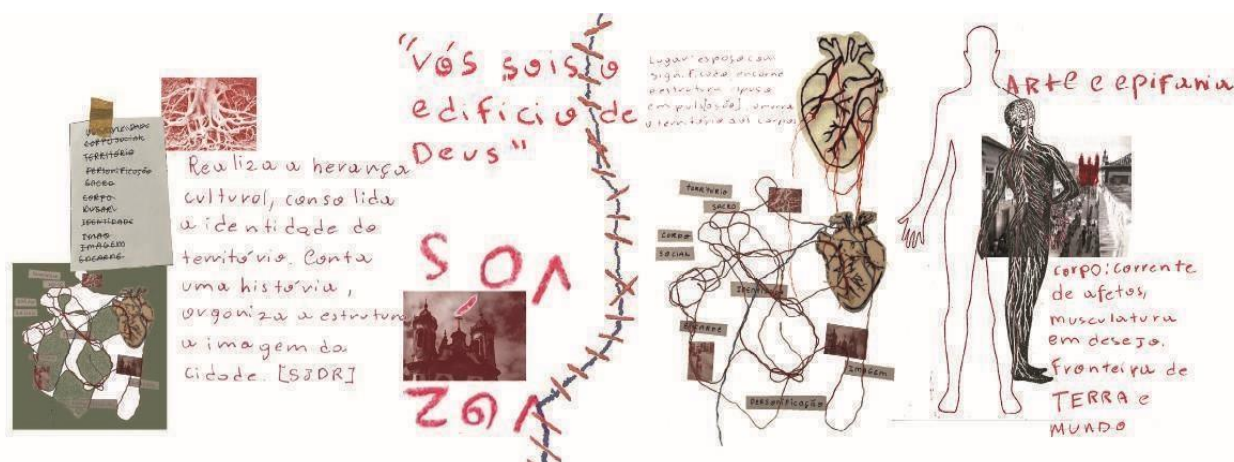 CORPO SOCIAL
TERRITÓRIO
PERSONIFICAÇÃO
SACRO
CORPO
IDENTIDADE
IMAGEM
ENCARNE
Realiza a herança
cultural, consolida
a identidade do
território. Conta
uma história,
organiza a estrutura
a imagem da
cidade. [SJDR]
"vós sois o
edifício de
Deus"
SOΛ
ZOΛ
Lugar: com
significado encarne
a estrutura
território aos corpos
TERRITÓRIO
SACRO
CORPO
SOCIAL
ENCARNE
IMAGEM
PERSONIFICAÇÃO
ARTE e epifania
corpo: corrente
de afetos,
musculatura
em desejo.
Fronteira de
TERRA e
MUNDO